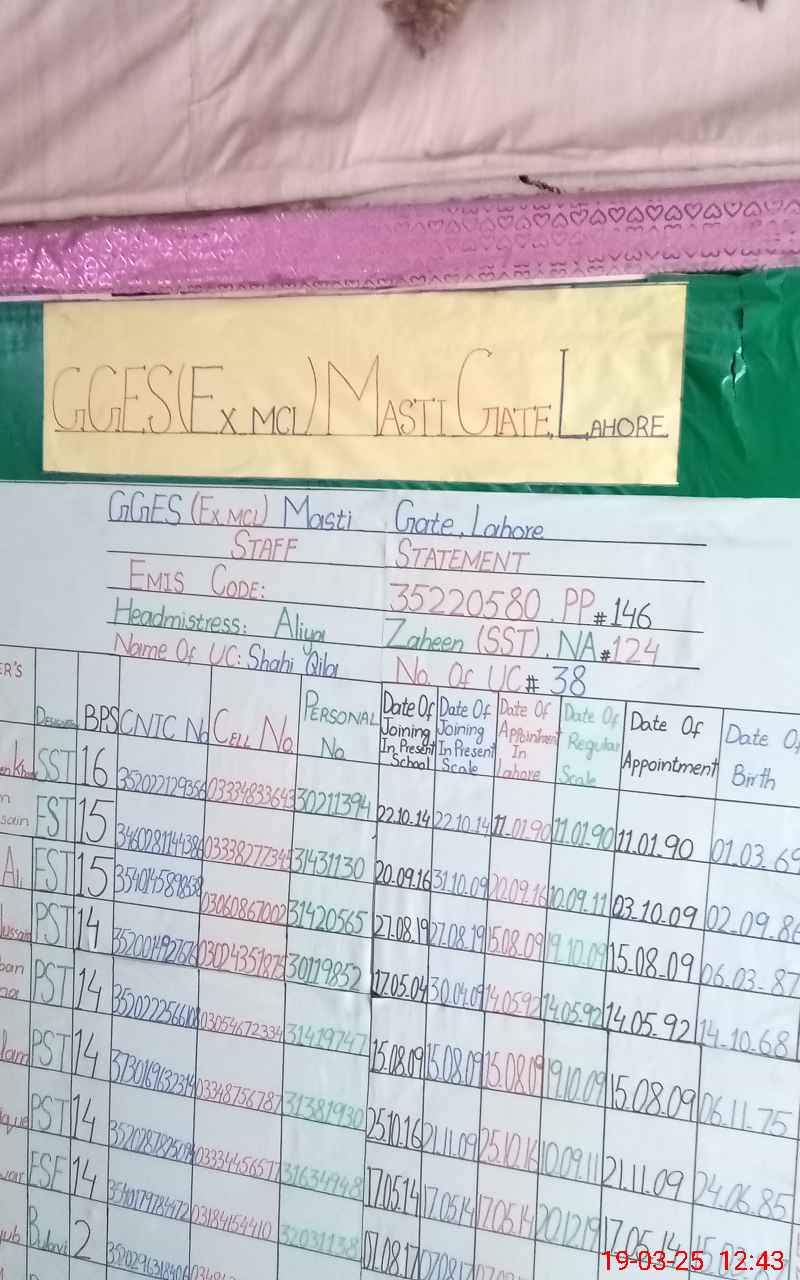 GGES (EX.MCL) MASTI GATE, LAHORE
GGES (EX.MCL) Masti Gate, Lahore
STAFF STATEMENT
EMIS CODE: 35220580. PP#146
Headmistress: Aliya Zaheen (SST). NA#124
Name Of UC: Shahi Qila No. Of UC# 38
ER'S BPS CNIC No CELL No. PERSONAL No. Date Of Joining In Present School Date Of Joining In Present Scale Date Of Appointment In Lahore Date Of Regular Scale Date Of Appointment Date Of Birth
SST 16 03334833643 30211394 22.10.14 22.10.14 11.01.90 11.01.90 11.01.90 01.03.69
sain EST 15 31431130 20.09.16 31.10.09 20.09.16 10.09.11 03.10.09 02.09.86
EST 15 03060867002 31420565 27.08.19 27.08.19 15.08.09 19.10.09 15.08.09 06.03.87
PST 14 30119852 17.05.04 30.04.09 14.05.92 14.05.92 14.05.92 14.10.68
PST 14 03054672334 31419747 15.08.09 15.08.09 15.08.09 19.10.09 15.08.09 06.11.75
PST 14 03348756787 31381930 25.10.16 21.11.09 25.10.16 10.09.11 21.11.09 24.06.85
PST 14 03334456577 31634948 17.05.14 17.05.14 17.05.14 20.12.19 17.05.14
ESE 14 03184154410 32031138 07.08.17 07.08.17
2
19-03-25 12:43